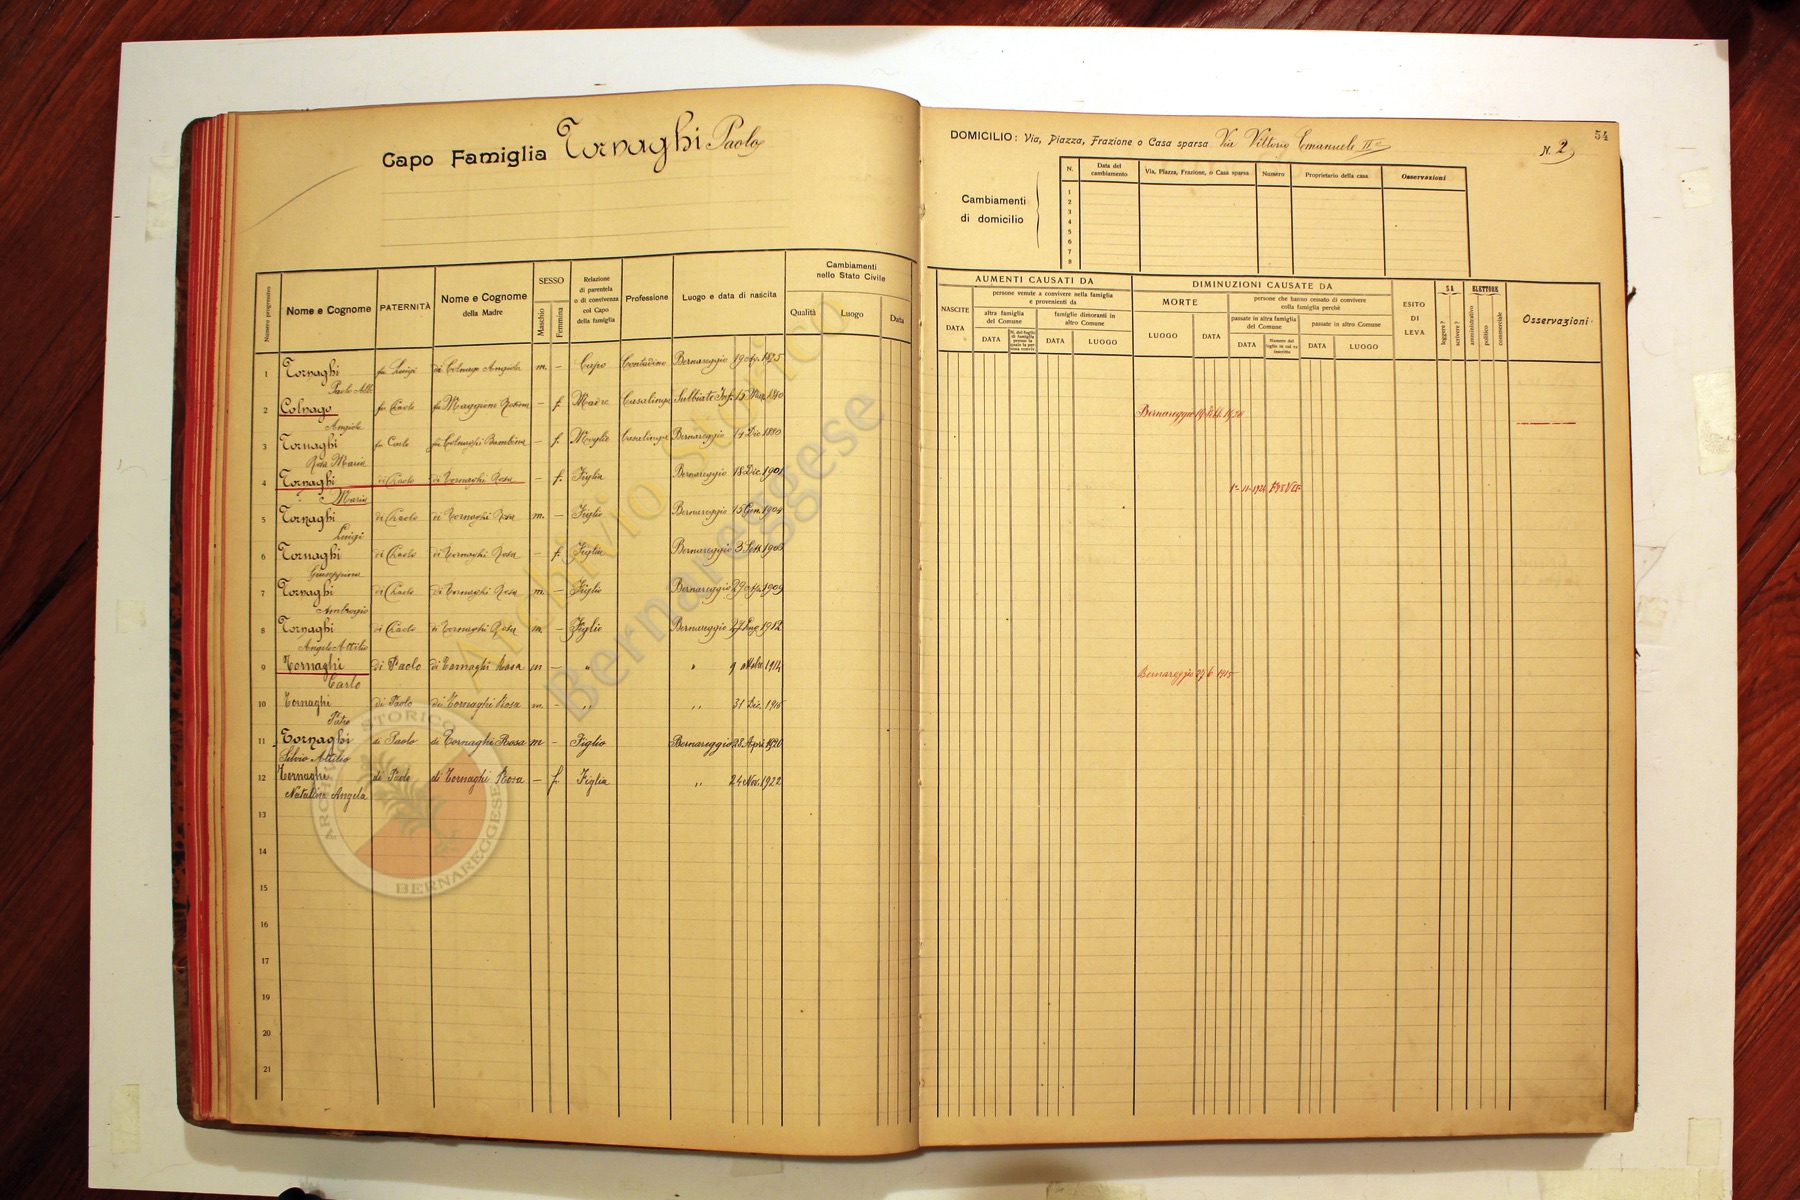 Capo Famiglia Tornaghi Paolo
Nome e Cognome
PATERNITÀ
Nome e Cognome
della Madre
SESSO
Maschio
Femmina
Relazione
di parentela
o di convivenza
col Capo
della famiglia
Professione
Luogo e data di nascita
Cambiamenti
nello Stato Civile
Qualità
Luogo
Data
Numero progressivo
1 Tornaghi fu Luigi di Colnago Angiola m. – Capo Contadino Bernareggio 19 1875
Paolo
2 Colnago fu Paolo fu Maggioni – f. Madre Casalinga Sulbiate Inf. 15 Mag. 1840
Angiola
3 Tornaghi fu Carlo fu Bambina – f. Moglie Casalinga Bernareggio 14 Dic 1880
Rosa Maria
4 Tornaghi di Paolo di Tornaghi Rosa – f. Figlia Bernareggio 18 Dic. 1901
Maria
5 Tornaghi di Paolo di Tornaghi Rosa m. – Figlio Bernareggio 15 Gen. 1904
Luigi
6 Tornaghi di Paolo di Tornaghi Rosa – f. Figlia Bernareggio 3 Sett.
Giuseppina
7 Tornaghi di Paolo di Tornaghi Rosa m. – Figlio Bernareggio 29 1909
Ambrogio
8 Tornaghi di Paolo di Tornaghi Rosa m. – Figlio Bernareggio 27 1912
Angelo Attilio
9 Tornaghi di Paolo di Tornaghi Rosa m – „ „ 9 ottobre 1914
Carlo
10 Tornaghi di Paolo di Tornaghi Rosa m. – „ „ 31 Dic. 1915
Pietro
11 Tornaghi di Paolo di Tornaghi Rosa m – Figlio Bernareggio 28 Apri. 1920
Silvio Attilio
12 Tornaghi di Paolo di Tornaghi Rosa – f. Figlia „ 24 Nov. 1922
Natalina Angela
13
14
15
16
17
18
19
20
21
54
DOMICILIO: Via, Piazza, Frazione o Casa sparsa Via Vittorio Emanuele II
N. 2
Cambiamenti
di domicilio
N.
Data del
cambiamento
Via, Piazza, Frazione, o Casa sparsa
Numero
Proprietario della casa
Osservazioni
1
2
3
4
5
6
7
8
AUMENTI CAUSATI DA
NASCITE
DATA
persone venute a convivere nella famiglia
e provenienti da
altra famiglia
del Comune
DATA
N. del foglio
di famiglia
presso la
quale la per
sona convive
famiglie dimoranti in
altro Comune
DATA
LUOGO
DIMINUZIONI CAUSATE DA
MORTE
LUOGO
DATA
persone che hanno cessato di convivere
colla famiglia perchè
passate in altra famiglia
del Comune
DATA
Numero del
foglio in cui va
inscritto
passate in altro Comune
DATA
LUOGO
ESITO
DI
LEVA
SA
leggere?
scrivere?
ELETTORE
amministrativo
politico
commerciale
Osservazioni
Bernareggio
1°-11-1924
Bernareggio 27 6 1915
Archivio Storico
Bernareggese
ARCHIVIO STORICO
BERNAREGGESE